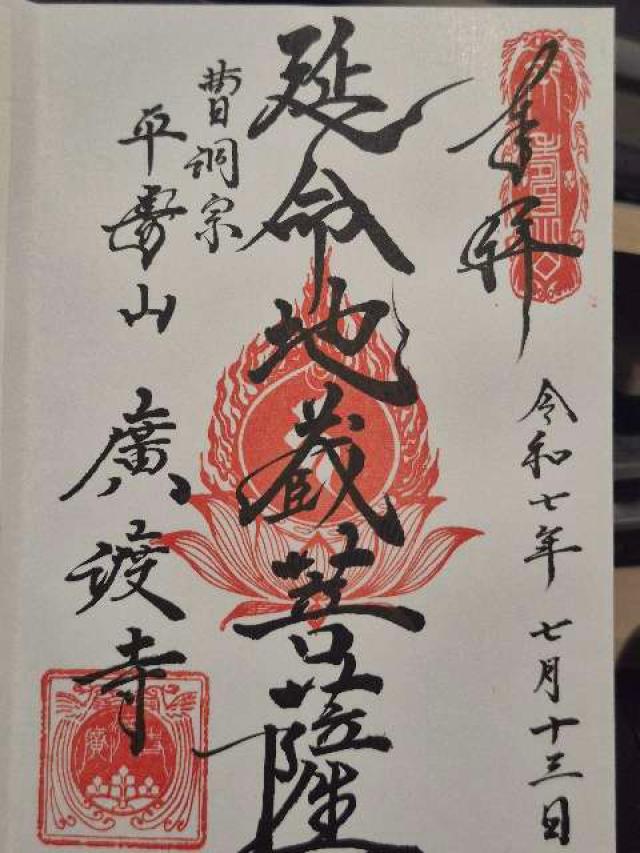 奉拝
令和七年 七月十三日
延命地蔵菩薩
曹洞宗
平壽山 廣渡寺